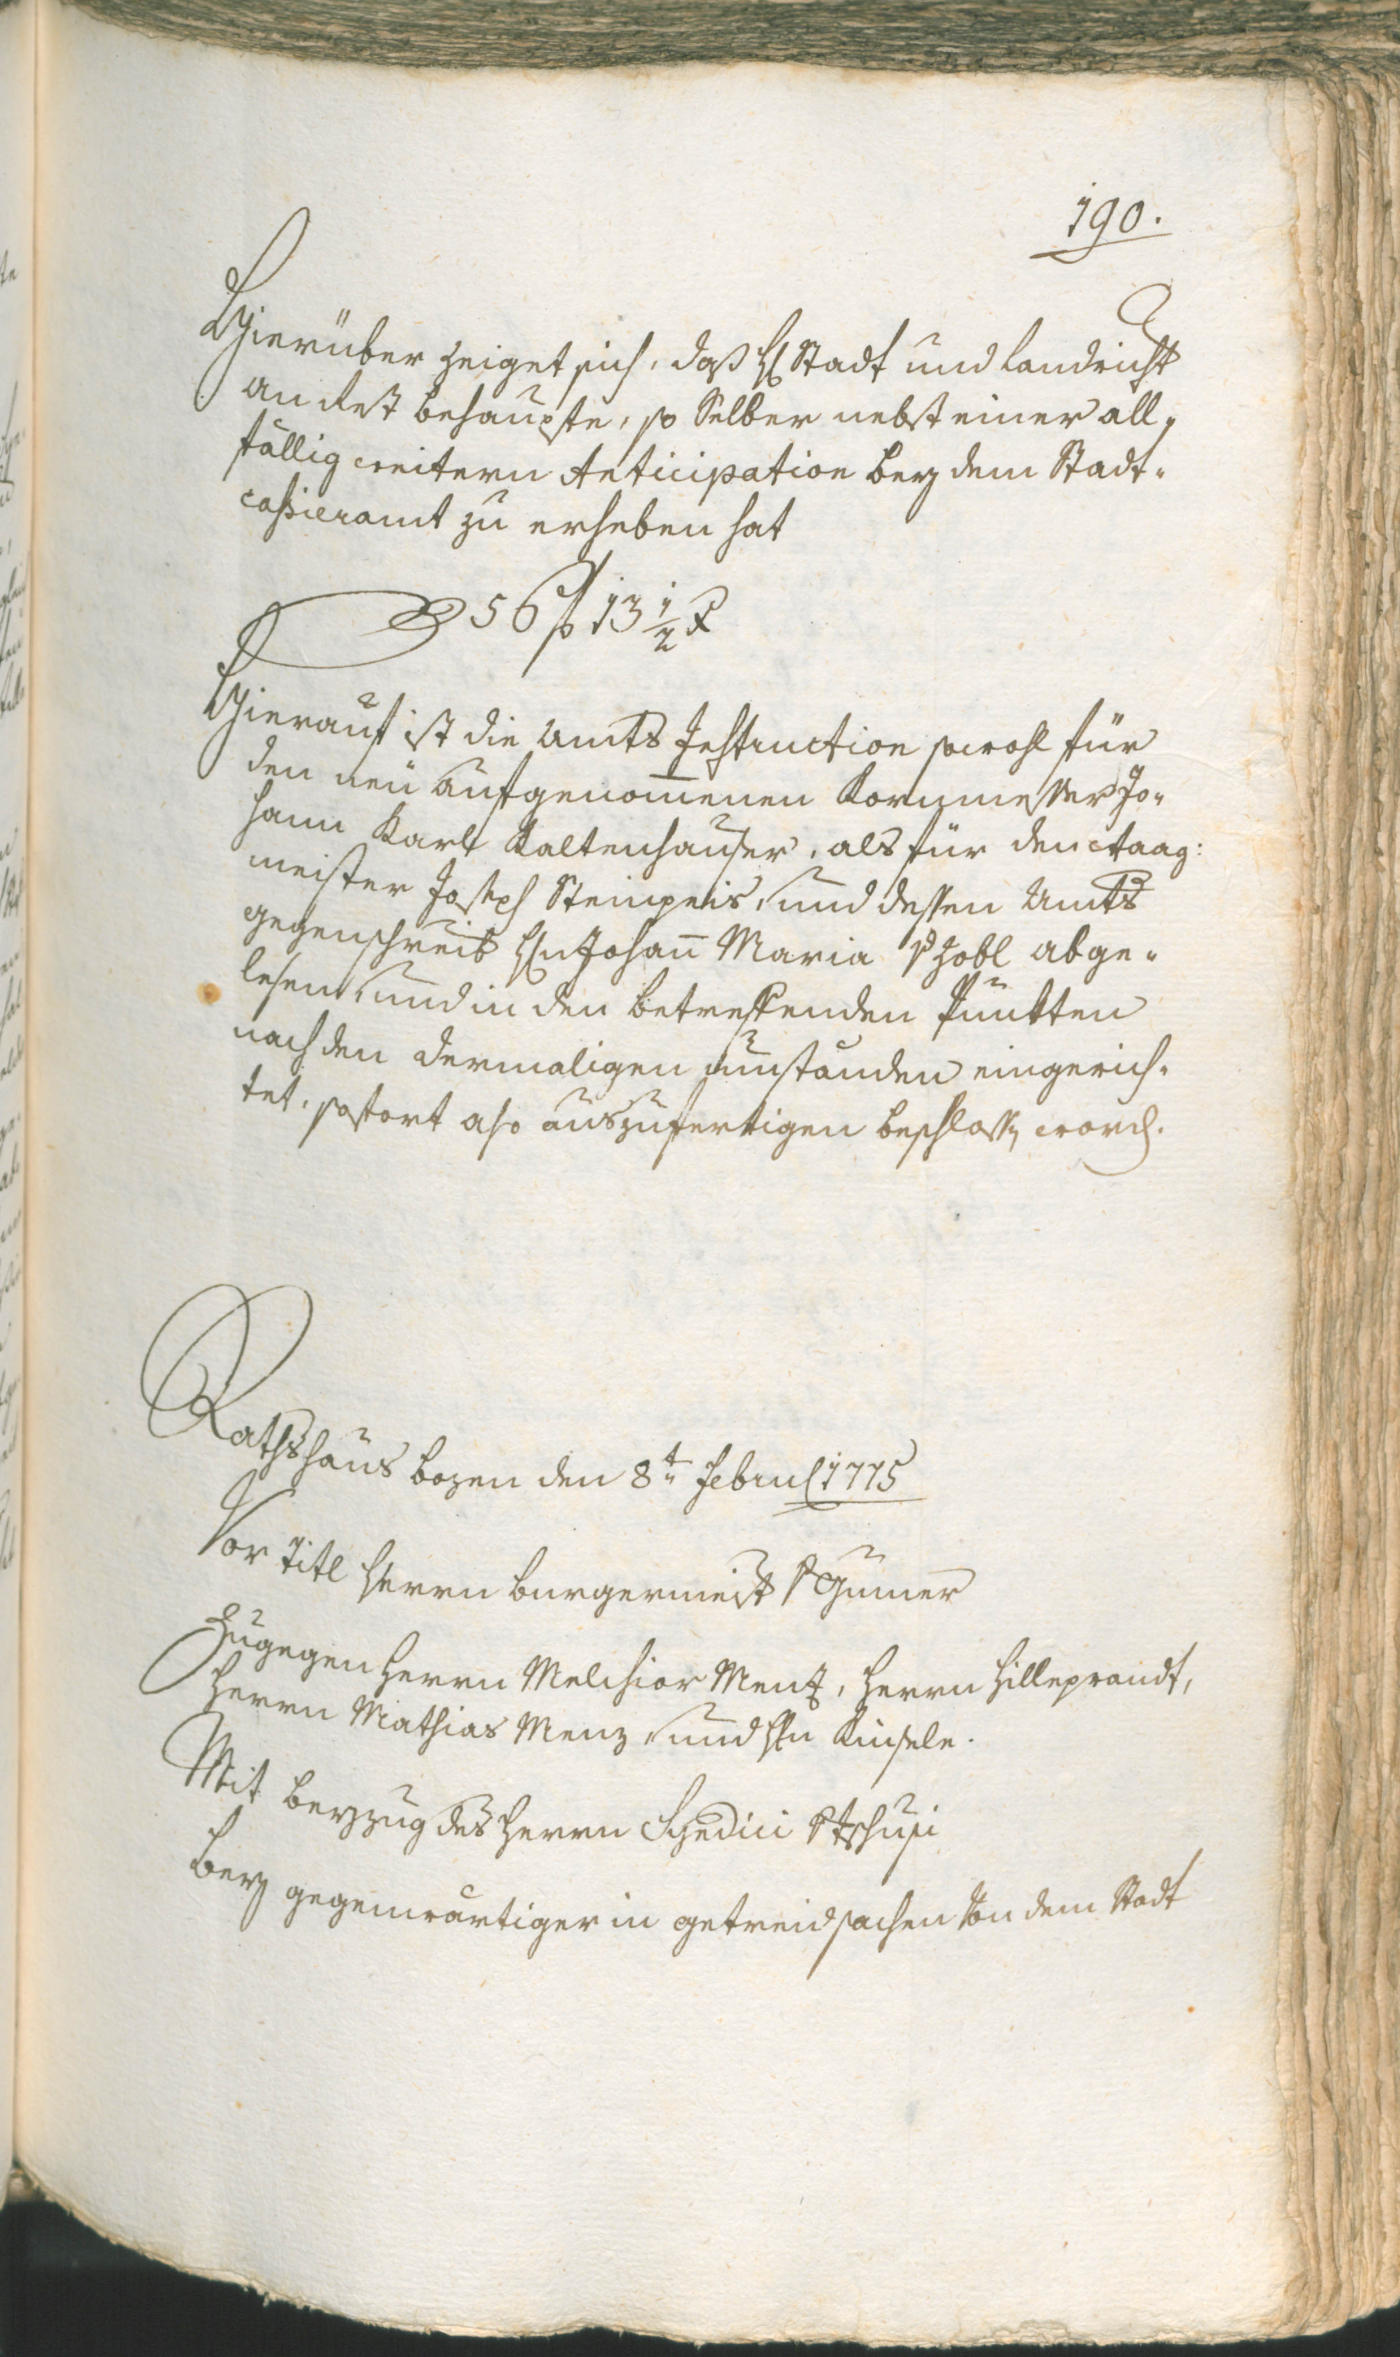 190.
Hierüber zeiget sich, daß H: Stadt und Landricht:
an Rest behaupte, so Selber nebst einer all-
fällig weitern Anticipation bey dem Stadt-
cassieramt zu erheben hat
56 f 13 1/2 x
Hierauf ist die Amts Instruction sowohl für
den neü aufgenommenen Kornmesser Jo-
hann Karl Kaltenhauser, als für den Waag:
meister Joseph und dessen Amts
gegenschreib: Hn Johann Maria v Zobl abge-
lesen, und in den betreffenden Punkten
nach den dermaligen umständen eingerich-
tet, sofort also auszufertigen beschlossen word:
Rathshaus bozen den 8t: Febru: 1775
Vor Titl Herrn burgermeist: v Gumer
Zugegen Herrn Melchior Menz, Herrn Hilleprandt,
Herrn Mathias Menz, und Hn Kinsele.
Mit beyzug des Herrn Syndici v Tschusi
bey gegenwärtiger in getreidsachen von dem Stadt